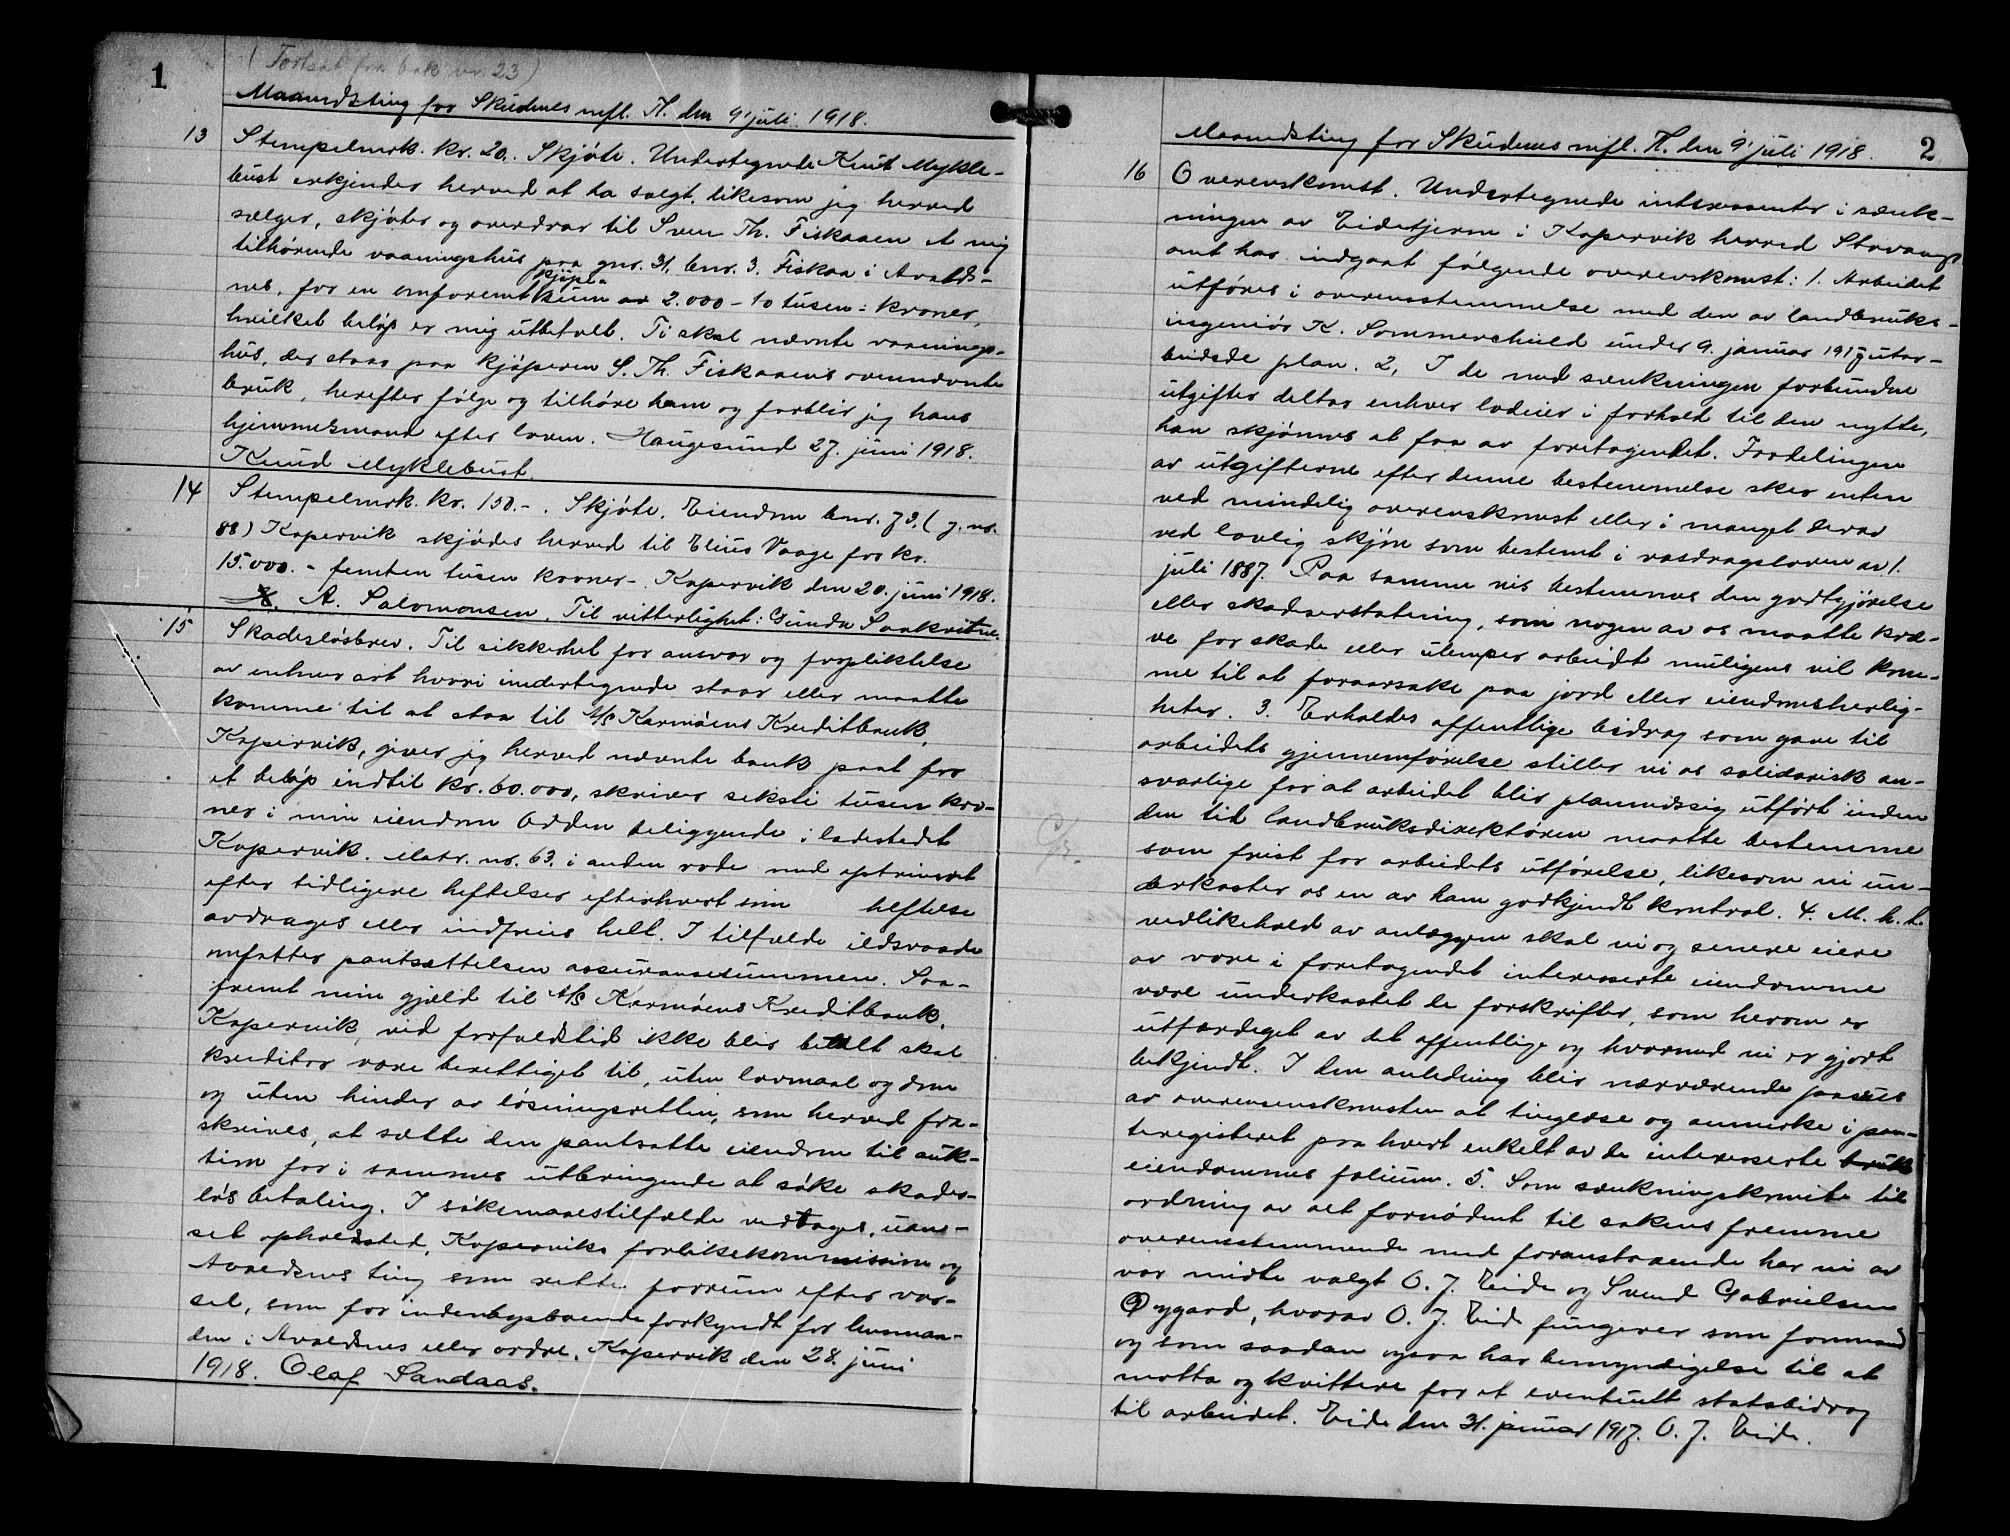 1
(Fortsat fra bok nr. 23)
Maanedsting for Skudenes mfl. Th. den 9' juli 1918.
13
Stempelmrk. kr. 20,. Skjøte. Undertegnede Knut Mykle-
bust erkjender herved at ha solgt, likesom jeg herved
sælger, skjøter og overdrar til Sven Th. Fiskaaen et mig
tilhørende vaaningshus paa gnr. 31, bnr. 3. Fiskaa i Avalds-
nes, for en omforenet kjøpe-
sum av 2.000 - to tusen: kroner,
hvilket beløp er mig utbetalt. Ti skal nævnte vaanings-
hus, der staar paa kjøperen S. Th. Fiskaaens ovennævnte
bruk, herefter følge og tilhøre ham og forblir jeg hans
hjemmelsmand efter loven. Haugesund 27. juni 1918.
Knud Myklebust.
14
Stempelmrk. kr. 150.-. Skjøte. Eiendom bnr. 73. (g. nr.
88) Kopervik skjødes herved til Elius Vaage for kr.
15.000. - femten tusen kroner -. Kopervik den 20. juni 1918.
A. Salomonsen. Til vitterlighet: Gunda Saakvitne.
15
Skadesløsbrev. Til sikkerhet for ansvar og forpliktelse
av enhver art hvori undertegnede staar eller maatte
komme til at staa til A/S Karmøens Kreditbank,
Kopervik, giver jeg herved nævnte bank pant for
et beløp indtil kr. 60.000, skriver seksti tusen kro-
ner i min eiendom Odden beliggende i ladestedet
Kopervik. Matr. nr. 63. i anden rode med optrinsret
efter tidligere heftelser efterhvert som heftelse
avdrages eller indfries helt. I tilfælde ildsvaade
omfatter pantsættelsen assuransesummen. Saa-
fremt min gjæld til A/S Karmøens Kreditbank,
Kopervik, ved forfaldstid ikke blir betalt skal
kreditor være berettiget til, uten lovmaal og dom
og uten hinder av løsningsretten, som herved fra-
skrives, at sætte den pantsatte eiendom til auk-
tion for i sammes utbringende at søke skades-
løs betaling. I søksmaalstilfælde vedtages, uan-
set opholdssted, Koperviks forlikskommission og
Avaldsnes ting som rette forum efter var-
sel, som for indenbysboende forkyndt for lensman-
den i Avaldsnes eller ordre. Kopervik den 28. juni
1918. Olaf Sandaas.
2
Maanedsting for Skudenes mfl. Th. den 9' juli 1918.
16
Overenskomst. Undertegnede interessenter i sænk-
ningen av Eidetjern i Kopervik herred Stavanger
amt har indgaat følgende overenskomst: 1. Arbeidet
utføres i overensstemmelse med den av landbruks-
ingeniør K. Sommerschield under 9. januar 1917 utar-
beidede plan. 2, I de med sænkningen forbundne
utgifter deltar enhver lodeier i forhold til den nytte,
han skjønnes at faa av foretagendet. Fordelingen
av utgifterne efter denne bestemmelse sker enten
ved mindelig overenskomst eller i mangel derav
ved lovlig skjøn som bestemt i vasdragsloven av 1.
juli 1887. Paa samme vis bestemmes den godtgjørelse
eller skadeserstatning, som nogen av os maatte kræ-
ve for skade eller ulemper arbeidet muligens vil kom-
me til at foraarsake paa jord eller eiendomsherlig-
heter. 3. Erholdes offentlige bidrag som gave til
arbeidets gjennemførelse stiller vi os solidarisk an-
svarlige for at arbeidet blir planmæssig utført inden
den tid landbruksdirektøren maatte bestemme
som frist for arbeidets utførelse, likesom vi un-
derkaster os en av ham godkjendt kontrol. 4. M. h. t.
vedlikehold av anlæggene skal vi og senere eiere
av vore i foretagendet interesserte eiendomme
være underkastet de forskrifter, som herom er
utfærdiget av det offentlige og hvormed vi er gjort
bekjendt. I den anledning blir nærværende passus
av overensenskomsten at tinglæse og anmerke i pan-
teregisteret paa hvert enkelt av de interesserte bruks
eiendommes folium. 5. Som sænkningskomite til
ordning av alt fornødent til sakens fremme
overensstemmende med foranstaaende har vi av
vor midte valgt O. J. Eide og Svend Gabrielsen
Øygard, hvorav O. J. Eide fungerer som formand
og som saadan ogsaa har bemyndigelse til at
motta og kvittere for et eventuelt statsbidrag
til arbeidet. Eide den 31. januar 1917. O. J. Eide.